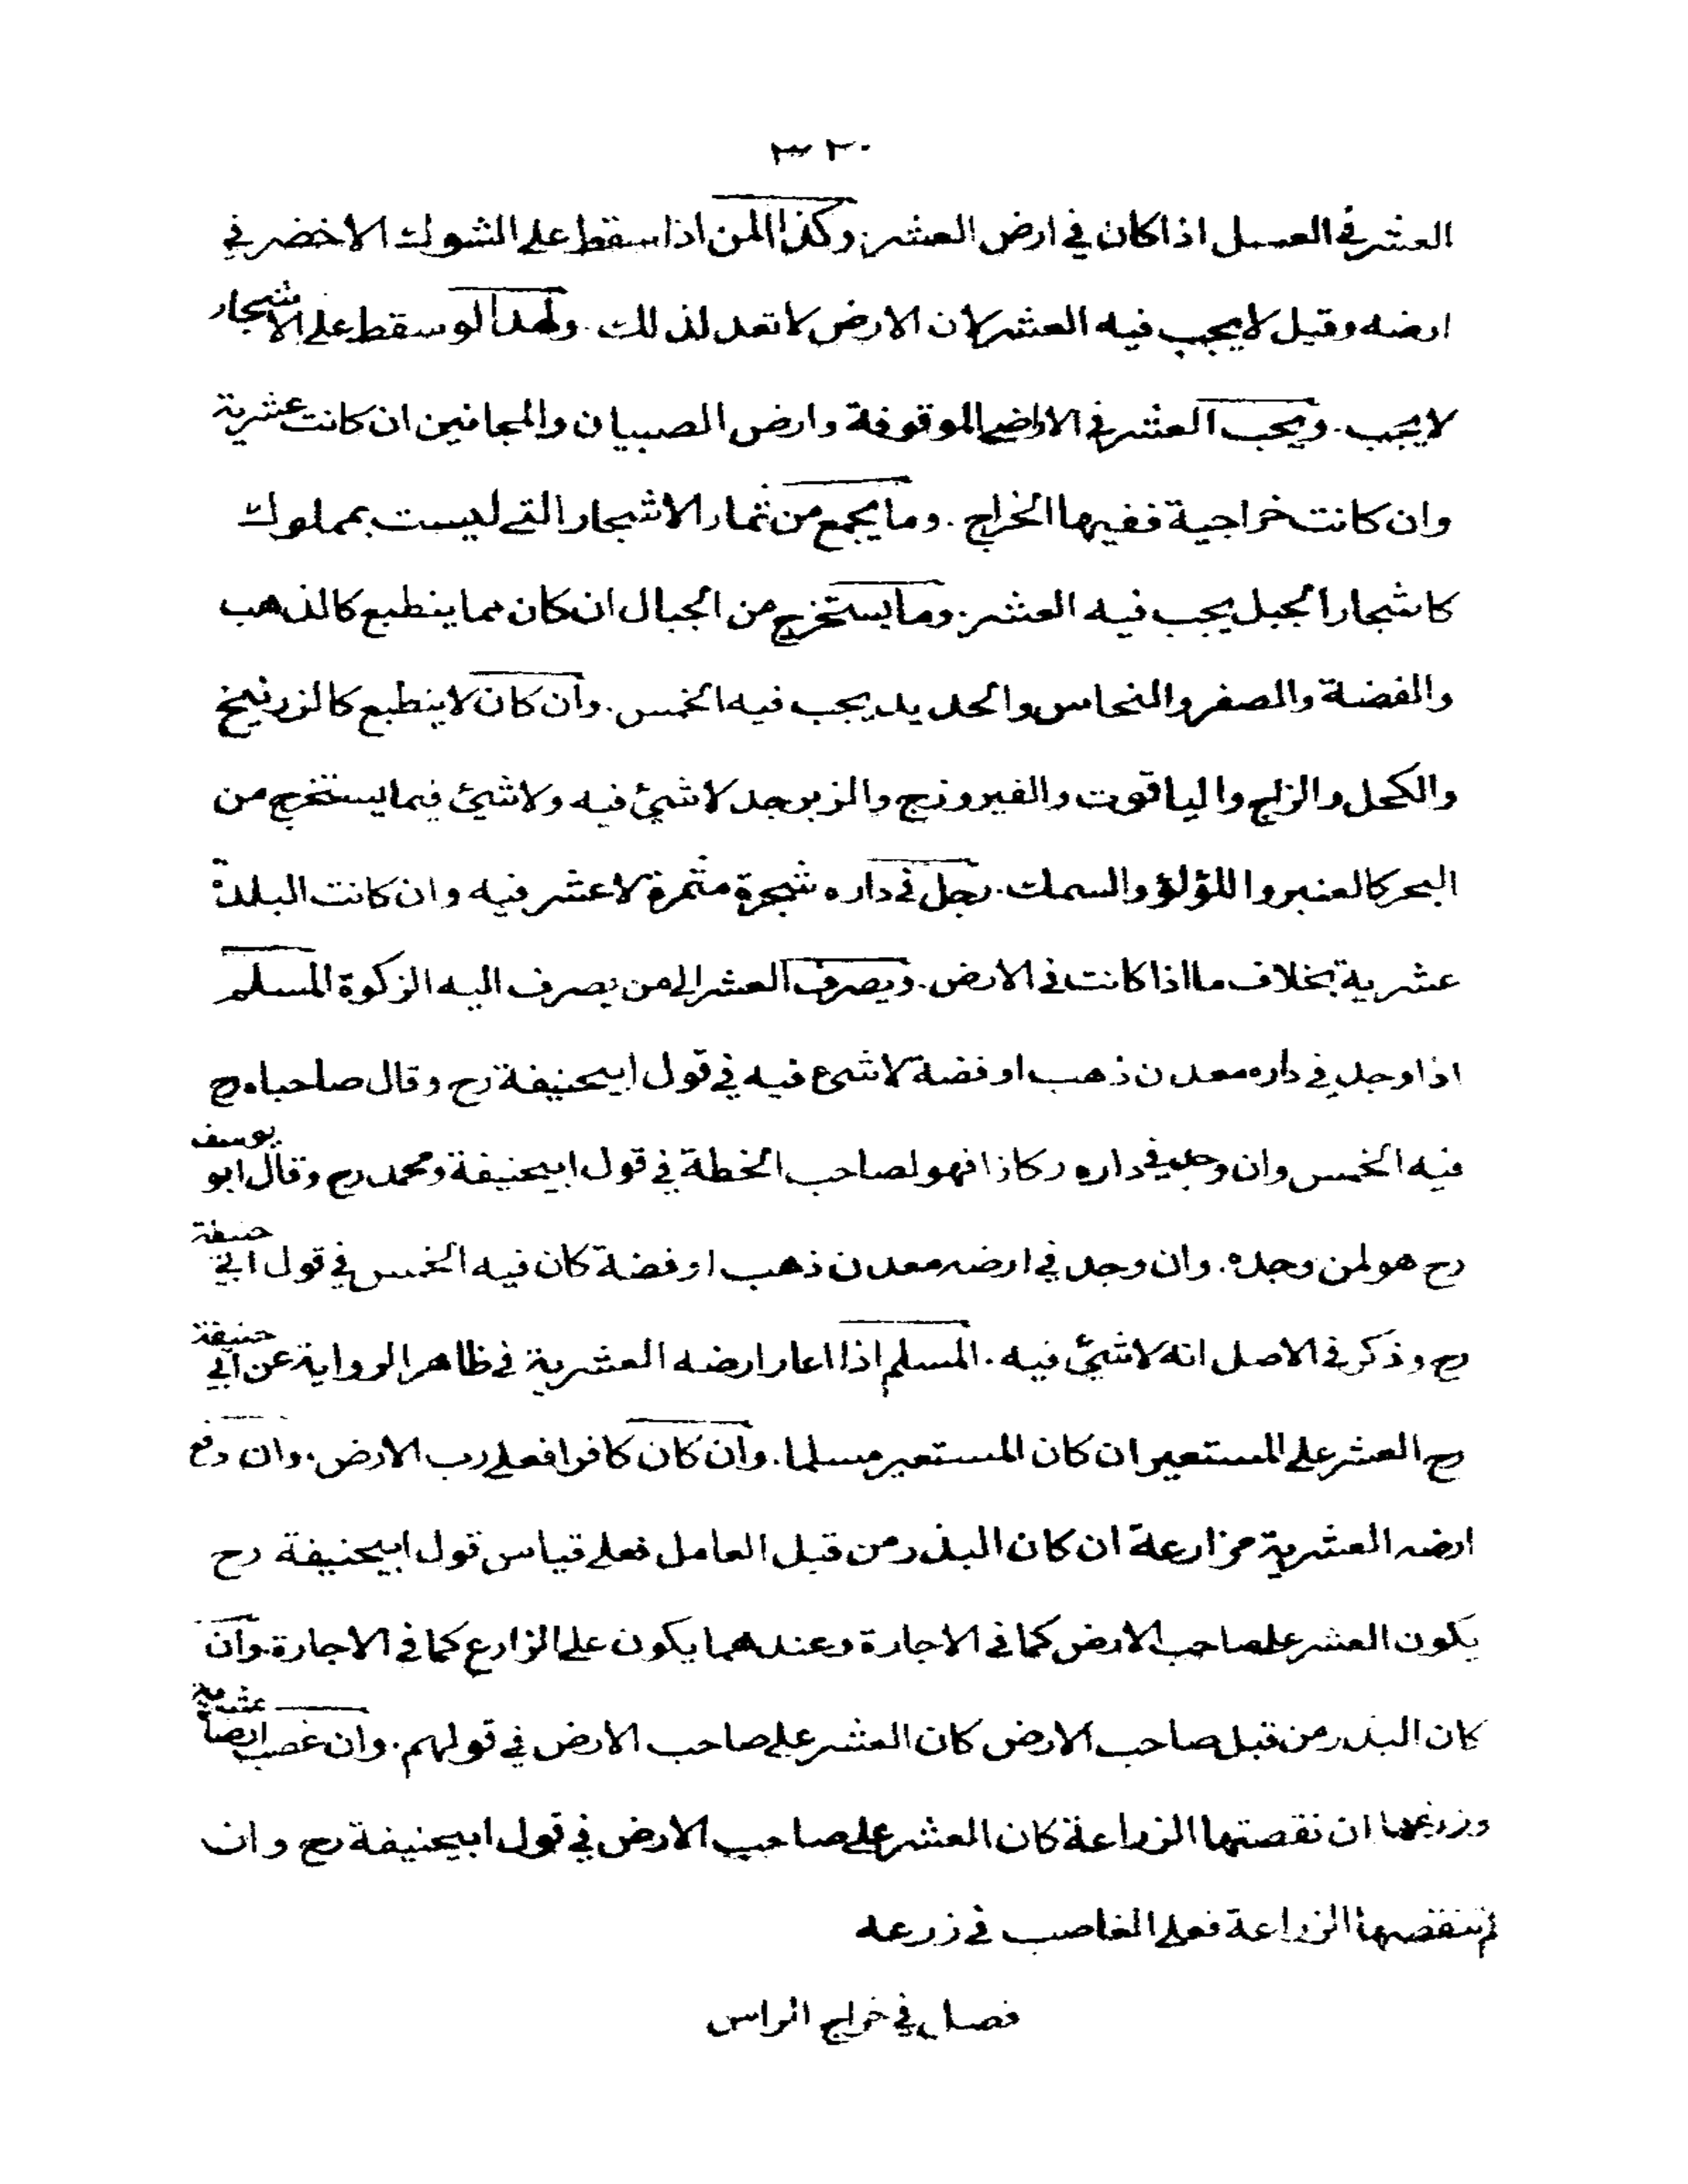 ٣٢٠
العشر في العسل اذا كان في ارض العشر. وكذا المن اذا سقط على الشوك الاخضر في
ارضه وقيل لا يجب فيه العشر لان الارض لا تعد لذلك. ولهذا لو سقط على الاشجار
لا يجب. ويجب العشر في الاراضي الموقوفة وارض الصبيان والمجانين ان كانت عشرية
وان كانت خراجية ففيها الخراج. وما يجمع من ثمار الاشجار التي ليست بمملوك
كاشجار الجبل يجب فيه العشر. وما يستخرج من الجبال ان كان مما ينطبع كالذهب
والفضة والصفر والنحاس والحديد يجب فيه الخمس. وان كان لا ينطبع كالزرنيخ
والكحل والزاج والياقوت والفيروزج والزبرجد لا شيئ فيه ولا شيئ فيما يستخرج من
البحر كالعنبر واللؤلؤ والسمك. رجل في داره شجرة مثمرة لا عشر فيه وان كانت البلدة
عشرية بخلاف ما اذا كانت في الارض. ويصرف العشر الى من يصرف اليه الزكوة المسلم
اذا وجد في داره معدن ذهب او فضة لا شيء فيه في قول ابيحنيفة رح وقال صاحباه رح
فيه الخمس وان وجد في داره ركازا فهو لصاحب الخطة في قول ابيحنيفة ومحمد رح وقال ابو يوسف
رح هو لمن وجده. وان وجد في ارضه معدن ذهب او فضة كان فيه الخمس في قول ابي حنيفة
رح وذكر في الاصل انه لا شيئ فيه. المسلم اذا اعار ارضه العشرية في ظاهر الرواية عن ابي حنيفة
رح العشر على المستعير ان كان المستعير مسلما. وان كان كافرا فعلى رب الارض. وان دفع
ارضه العشرية مزارعة ان كان البذر من قبل العامل فعلى قياس قول ابيحنيفة رح
يكون العشر على صاحب الارض كما في الاجارة وعندهما يكون على الزارع كما في الاجارة. وان
كان البذر من قبل صاحب الارض كان العشر على صاحب الارض في قولهم. وان غصب ارضا عشرية
وزرعها ان نقصتها الزراعة كان العشر على صاحب الارض في قول ابيحنيفة رح وان
لم تنقصها الزراعة فعلى الغاصب في زرعه
فصل في خراج الراس